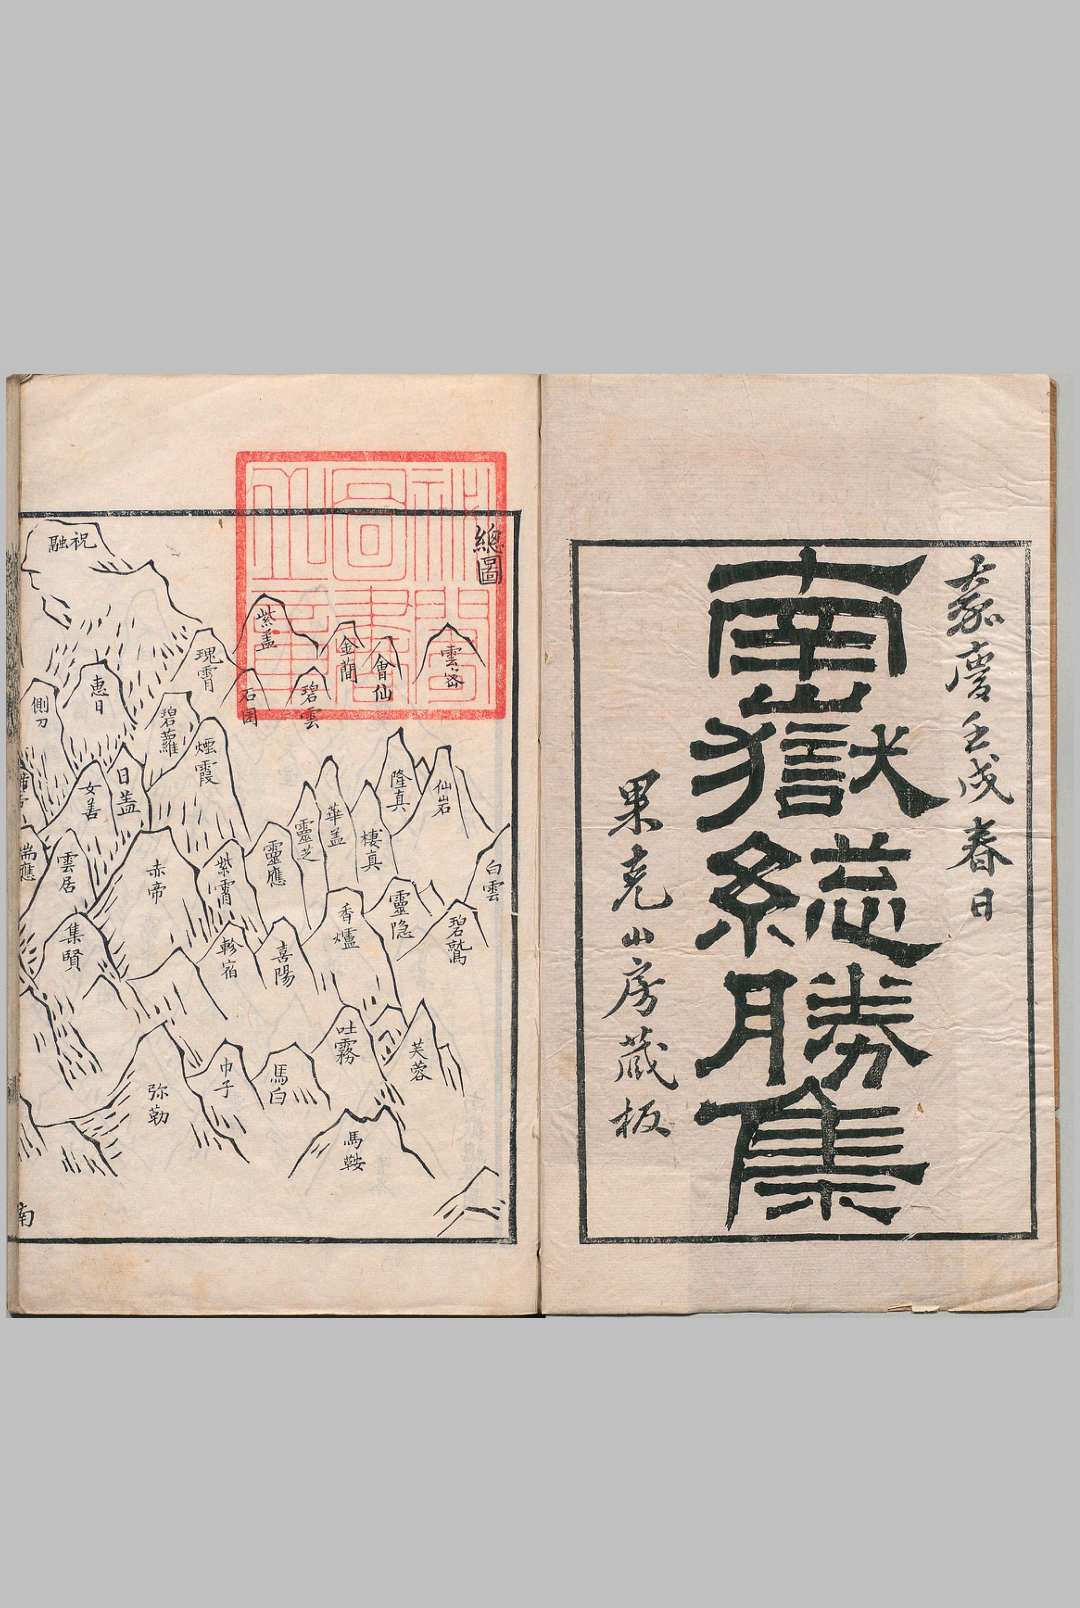 嘉慶壬戌春日
南嶽總勝集
果克山房藏板
總圖
祕閣
圖書
之章
雲密
會仙
金簡
紫蓋
碧雲
石囷
瑰霄
祝融
惠日
側刀
碧蘿
煙霞
日蓋
女善
仙岩
隆真
棲真
華蓋
靈芝
靈應
紫霄
赤帝
雲居
瑞應
白雲
碧鷲
靈隐
香爐
喜陽
軫宿
集賢
芙蓉
吐霧
馬白
巾子
弥勒
馬鞍
南